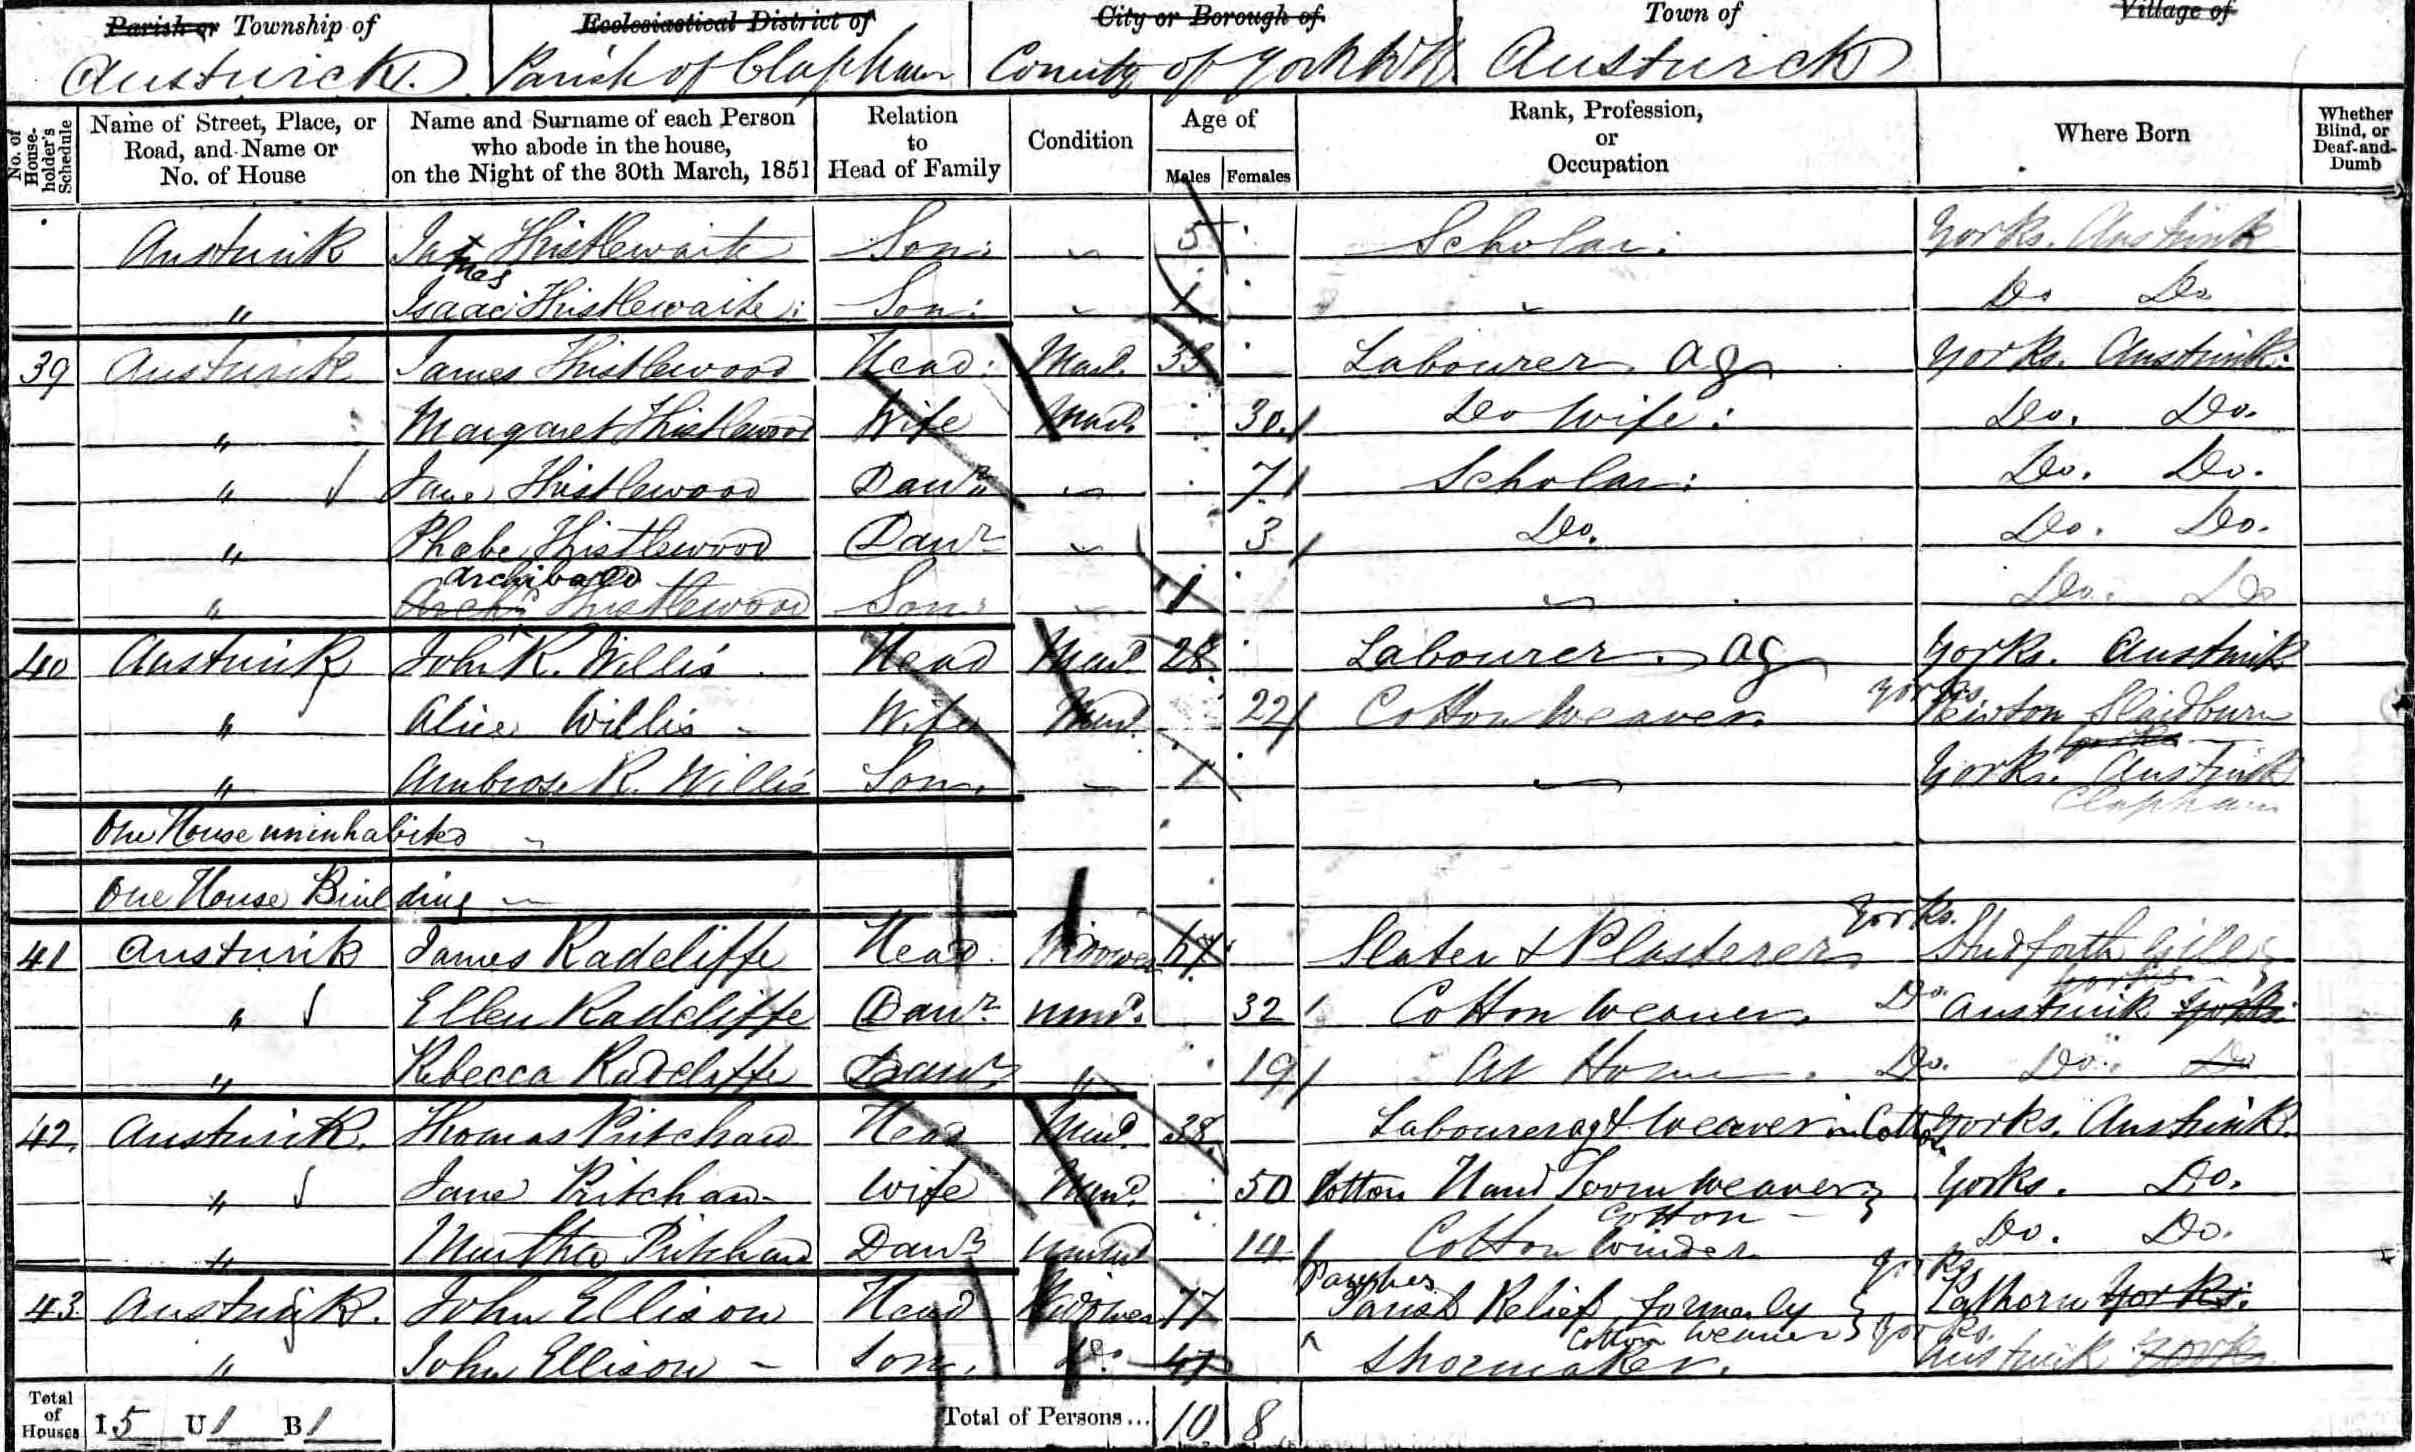 Parish or Township of Ecclesiastical District of City or Borough of Town of Village of
Austwick. Parish of Clapham County of York WR Austwick
No. of House-holder's Schedule
Name of Street, Place, or Road, and Name or No. of House
Name and Surname of each Person who abode in the house, on the Night of the 30th March, 1851
Relation to Head of Family
Condition
Age of
Males Females
Rank, Profession, or Occupation
Where Born
Whether Blind, or Deaf-and-Dumb
Austwick James Thistlewaite Son 5 Scholar Yorks. Austwick
" Isaac Thistlewaite Son 1 Do Do
39 Austwick James Thistlewood Head Mard. 33 Labourer Ag Yorks. Austwick
" Margaret Thistlewood Wife Mard. 30 Do Wife Do. Do.
" Jane Thistlewood Dawr 7 Scholar Do. Do.
" Phebe Thistlewood Dawr 3 Do. Do. Do.
Archibald
" Archd Thistlewood Son 1 Do. Do
40 Austwick John R. Willis Head Mard 28 Labourer Ag Yorks. Austwick
Yorks
" Alice Willis Wife Mard. 22 Cotton Weaver. Newton Slaidburn
" Ambrose R. Willis Son. 1 Yorks. Austwick
Clapham
One House uninhabited
One House Building
Yorks.
41 Austwick James Radcliffe Head Widower Slater & Plasterer Studforth Gill
" Ellen Radcliffe Dawr Unmd. 32 Cotton Weaver. Do. Austwick Yorks.
" Rebecca Radcliffe Dawr " 19 At Home. Do. Do. Do
42. Austwick. Thomas Pritchard Head Mard. 38 Labourer ag & Weaver in Cotton Yorks. Austwick.
" Jane Pritchard Wife Mard. 50 Cotton Hand Loom Weaver Yorks. Do.
Cotton
" Martha Pritchard Dawr Unmd 14 Cotton Winder Do. Do.
Yorks.
43. Austwick. John Ellison Head Widower 77 Parish Relief formerly Yorks.
Cotton Weaver Yorks.
" John Ellison Son. Do. 47 Shoemaker. Austwick Yorks
Total of Houses I 5 U 1 B 1 Total of Persons... 10 8